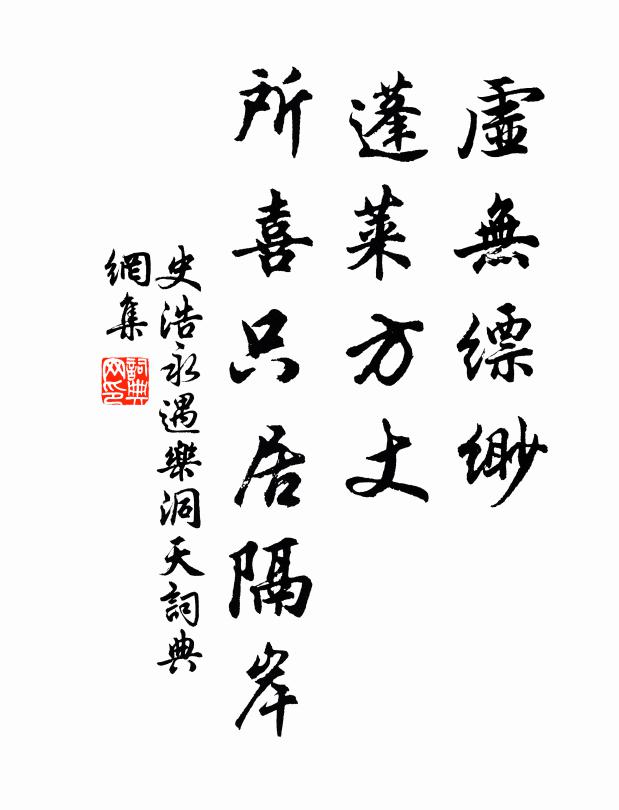 虛無縹緲
蓬萊方丈
所喜只居隔岸
史浩永遇樂洞天詞典
網集
詞典
网印